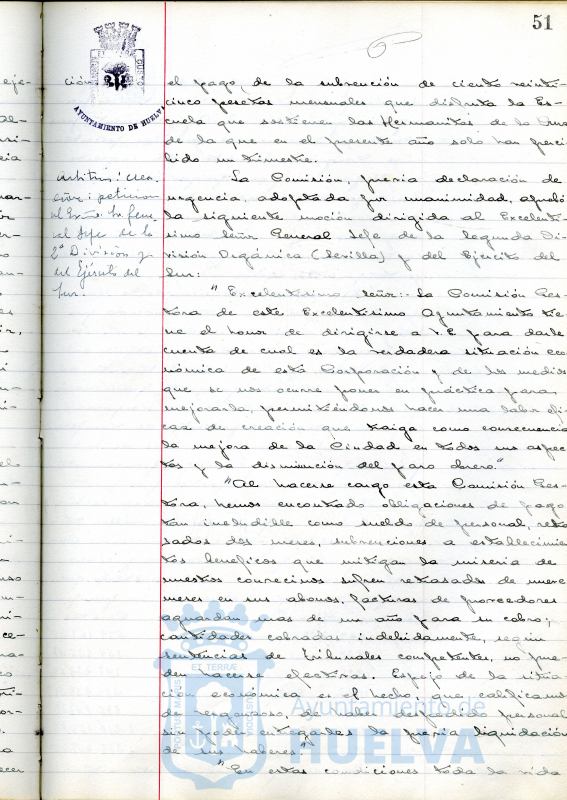 51
AYUNTAMIENTO DE HUELVA
el pago, de la subvención de ciento veinti-
cinco pesetas mensuales que disfruta la Es-
cuela que sostienen las Hermanitas de la Cruz
de la que en el presente año solo han perci-
bido un trimestre.
La Comisión, previa declaración de
urgencia, adoptada por unanimidad, aprobó
la siguiente moción dirigida al Excelentí-
simo Señor General Jefe de la Segunda Di-
visión Orgánica (Sevilla) y del Ejército del
Sur:
arbitrios: crea-
ción: petición
al Excmo. Sr. Gene-
ral Jefe de la
2ª División y
del Ejército del
Sur.
"Excelentísimo Señor: La Comisión Ges-
tora de este Excelentísimo Ayuntamiento tie-
ne el honor de dirigirse a V.E. para darle
cuenta de cual es la verdadera situación eco-
nómica de esta Corporación y de los medios
que se nos ocurre poner en práctica para
mejorarla, permitiéndonos hacer una labor efi-
caz de creación que traiga como consecuencia
la mejora de la Ciudad en todos sus aspec-
tos y la disminución del paro obrero."
"Al hacerse cargo esta Comisión Ges-
tora, hemos encontrado obligaciones de pago
tan ineludible como sueldo de personal, retra-
sados dos meses, subvenciones a establecimien-
tos beneficos que mitigan la miseria de
nuestros convecinos sufren retrasados de nueve
meses en sus abonos, facturas de proveedores
aguardan mas de un año para su cobro;
cantidades cobradas indebidamente, según
sentencias de Tribunales competentes, no pue-
den hacerse efectivas. Espejo de la situa-
ción económica es el hecho, que calificamos
de vergonzoso de haber despedido personal
sin poder entregarles la previa liquidación
de sus haberes."
"En estas condiciones toda la vida
Ayuntamiento de
HUELVA